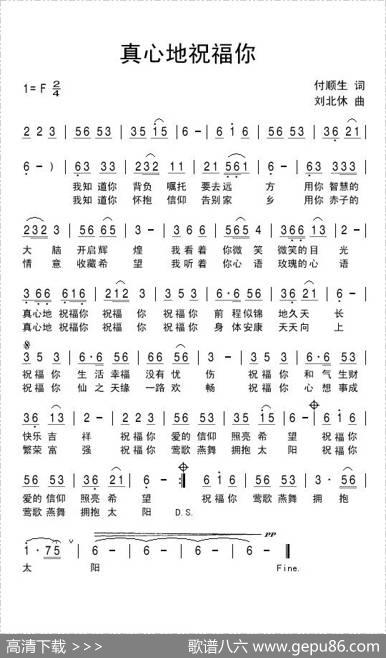 真心地祝福你
1= F 2/4
付顺生 词
刘北休 曲
2 2 3 | 5 6 5 3 | 3 5 1 5 | 6 - | 6 1 6 | 5 6 5 3 | 5 3 5 3 | 3 6 2 1 |
6 - ) | 6 3 3 3 | 2 3 2 1 1 | 2 1 5 6 1 | 6 - | 6 3 3 3 3 |
我知道你 背负 嘱托 要去远 方 用你智慧的
我知道你 怀抱 信仰 告别家 乡 用你赤子的
2 3 2 3 | 5 3 5 6 6 5 | 3 - | 2 1 2 3 | 5 6 5 4 | 3 6 6 1 3 | 2 - |
大 脑 开启辉 煌 我看着 你微笑 微笑的目 光
情 意 收藏希 望 我听着 你心语 玫瑰的心 语
3 6 6 6 1 6 | 2 1 2 3 | 3 5 3 | 6 · 6 5 6 | 3 6 2 1 | 6 - |
真心地 祝福你 祝福你 你 祝福你 前程似锦 地久天 长
真心地 祝福你 祝福你 你 祝福你 身体安康 天天向 上
3 5 3 | 6 · 6 5 6 | 1 2 - 3 | 2 - | 3 5 3 | 6 · 6 5 6 |
祝福你 生活幸福 没有忧 伤 祝福你 和气生财
祝福你 仙之天缘 一路欢 畅 祝福你 心想事成
3 6 1 3 | 2 - | 2 2 3 | 5 6 5 3 | 3 5 1 5 | 6 - | 6 1 6 |
快乐吉 祥 祝福你 爱的信仰 照亮希 望 祝福你
繁荣富 强 祝福你 莺歌燕舞 拥抱太 阳 祝福你
5 6 5 3 | 5 3 5 3 | 3 6 2 1 | 6 - | 6 1 6 | 5 6 5 3 | 5 3 5 3 |
爱的信仰 照亮希 望 祝福你 莺歌燕舞 拥抱
莺歌燕舞 拥抱太 阳 D.S.
1 · 7 5 | 6 - | 6 - | 6 - | 6 - | 6 - ‖
pp
太 阳 Fine.
高清下载 >>>
歌谱八六 www.gepu86.com